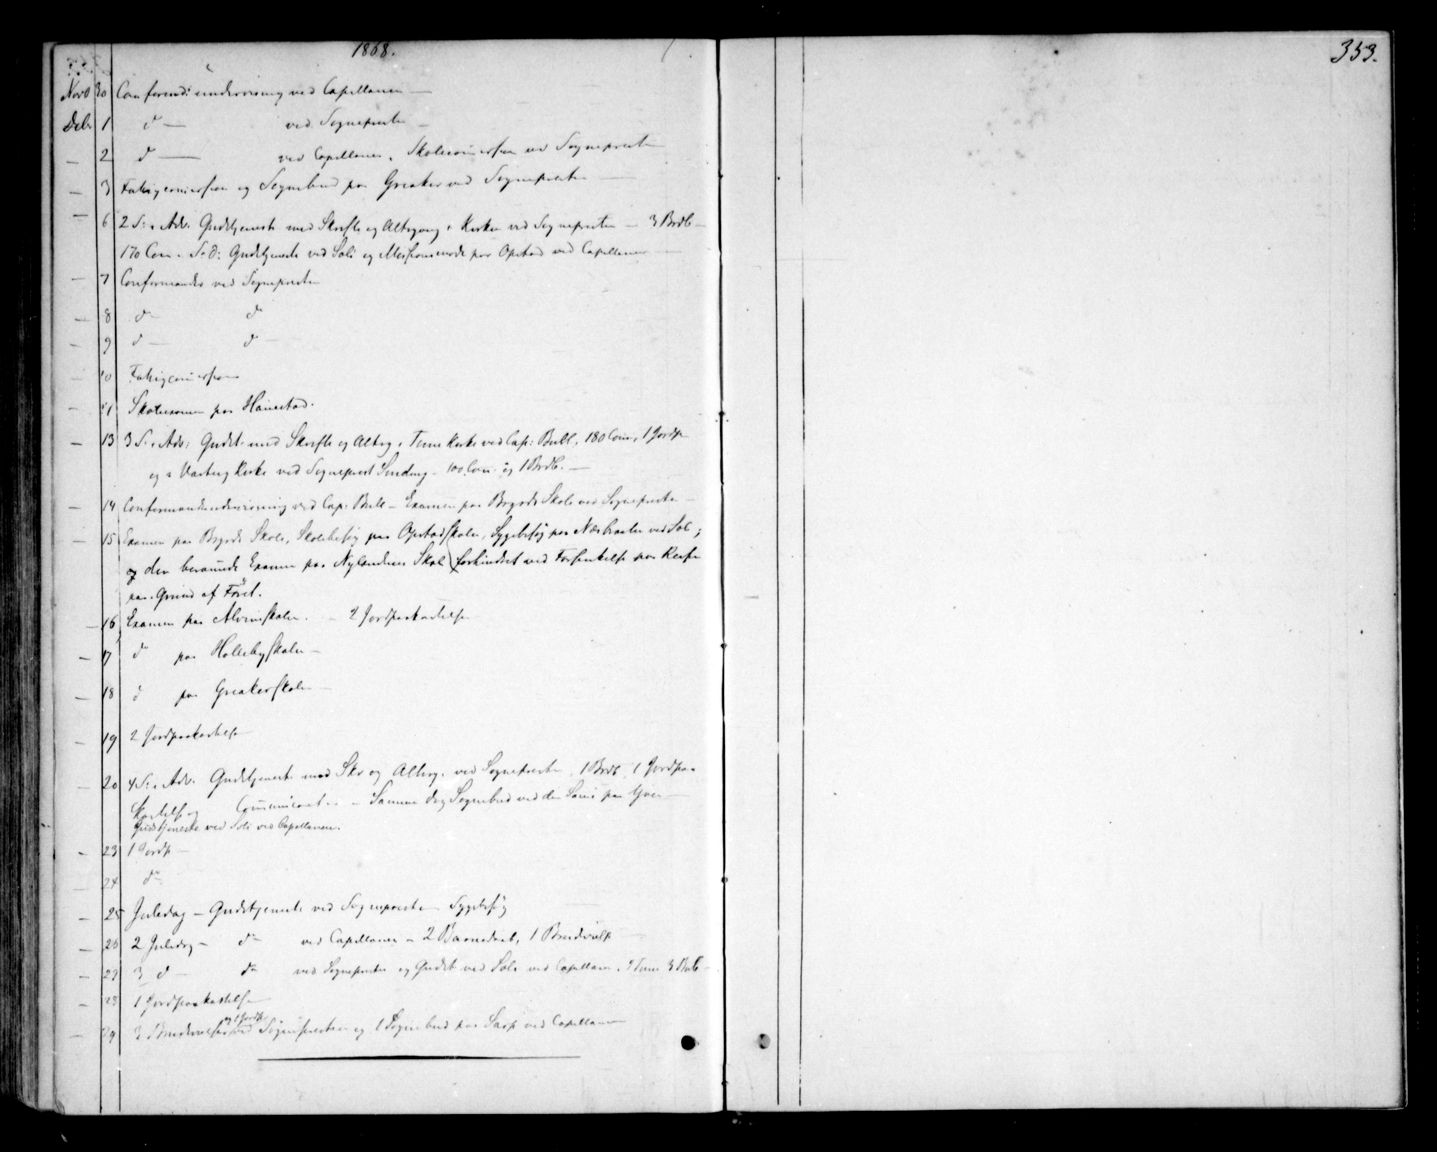 1868.
353.
Novb 30 Confirmd: undervisning ved Capellanen —
Dcb. 1 do — ved Sognepresten —
— 2 do — ved Capellanen. Skolecommission ved Sognepresten
— 3 Fattigcommission og Sognebud paa Greaker ved Sognepresten —
— 6 2 S: i Adv. Gudstjeneste med Skrifte og Altergang i Kirke ved Sognepresten — 3 Brdb —
170 Com. — S. D: Gudstjeneste ved Soli og Missionsmøde paa Opstad ved Capellanen —
— 7 Confirmander ved Sognepresten
— 8 do do
— 9 do — do —
— 10 Fattigcommission
— 11 Skoleexamen paa Hannestad.
— 13 3 S. i Adv: Gudst. med Skrifte og Alterg. i Tune Kirke ved Cap: Bull. 180 Com. 1 Jordp
og i Varteig Kirke ved Sogneprest Sinding. 100 Com. og 1 Brdb. —
— 14 Confirmandundervisning ved Cap: Bull — Examen paa Bryards Skole ved Sognepresten —
— 15 Examen paa Bryards Skole, Skolebesøg paa Opstadskolen, Sygebesøg paa ved Sol;
og den berammede Examen paa Nylandenes Skole forhindret ved Forsinkelse paa Reisen
paa Grund af Føret.
— 16 Examen paa Alvimskolen. — 2 Jordpaakastelse
— 17 do paa Hollebyskolen —
— 18 do paa Greakerskolen —
— 19 2 Jordpaakastelse
— 20 4 S. i Adv. Gudstjeneste med Skr og Alterg. ved Sognepresten. 1 Brdb. 1 Jordpaa-
kastelse og Communicanter — Samme Dag Sognebud ved den
Gudstjeneste ved Soli ved Capellanen.
— 23 1 Jordp —
— 24 do
— 25 Juledag — Gudstjeneste ved Sognepresten Sygebesøg
— 26 2 Juledag — do ved Capellanen — 2 Barnedaab, 1 Brudevielse
— 27 3 d — do ved Sognepresten og Gudst ved Soli ved Capellanen. i Tune 3 Brdb —
— 28 1 Jordpaakastelse
29 3 Brudevielser og 1 Jordp ved Sognepresten og 1 Sognebud paa Sarp ved Capellanen